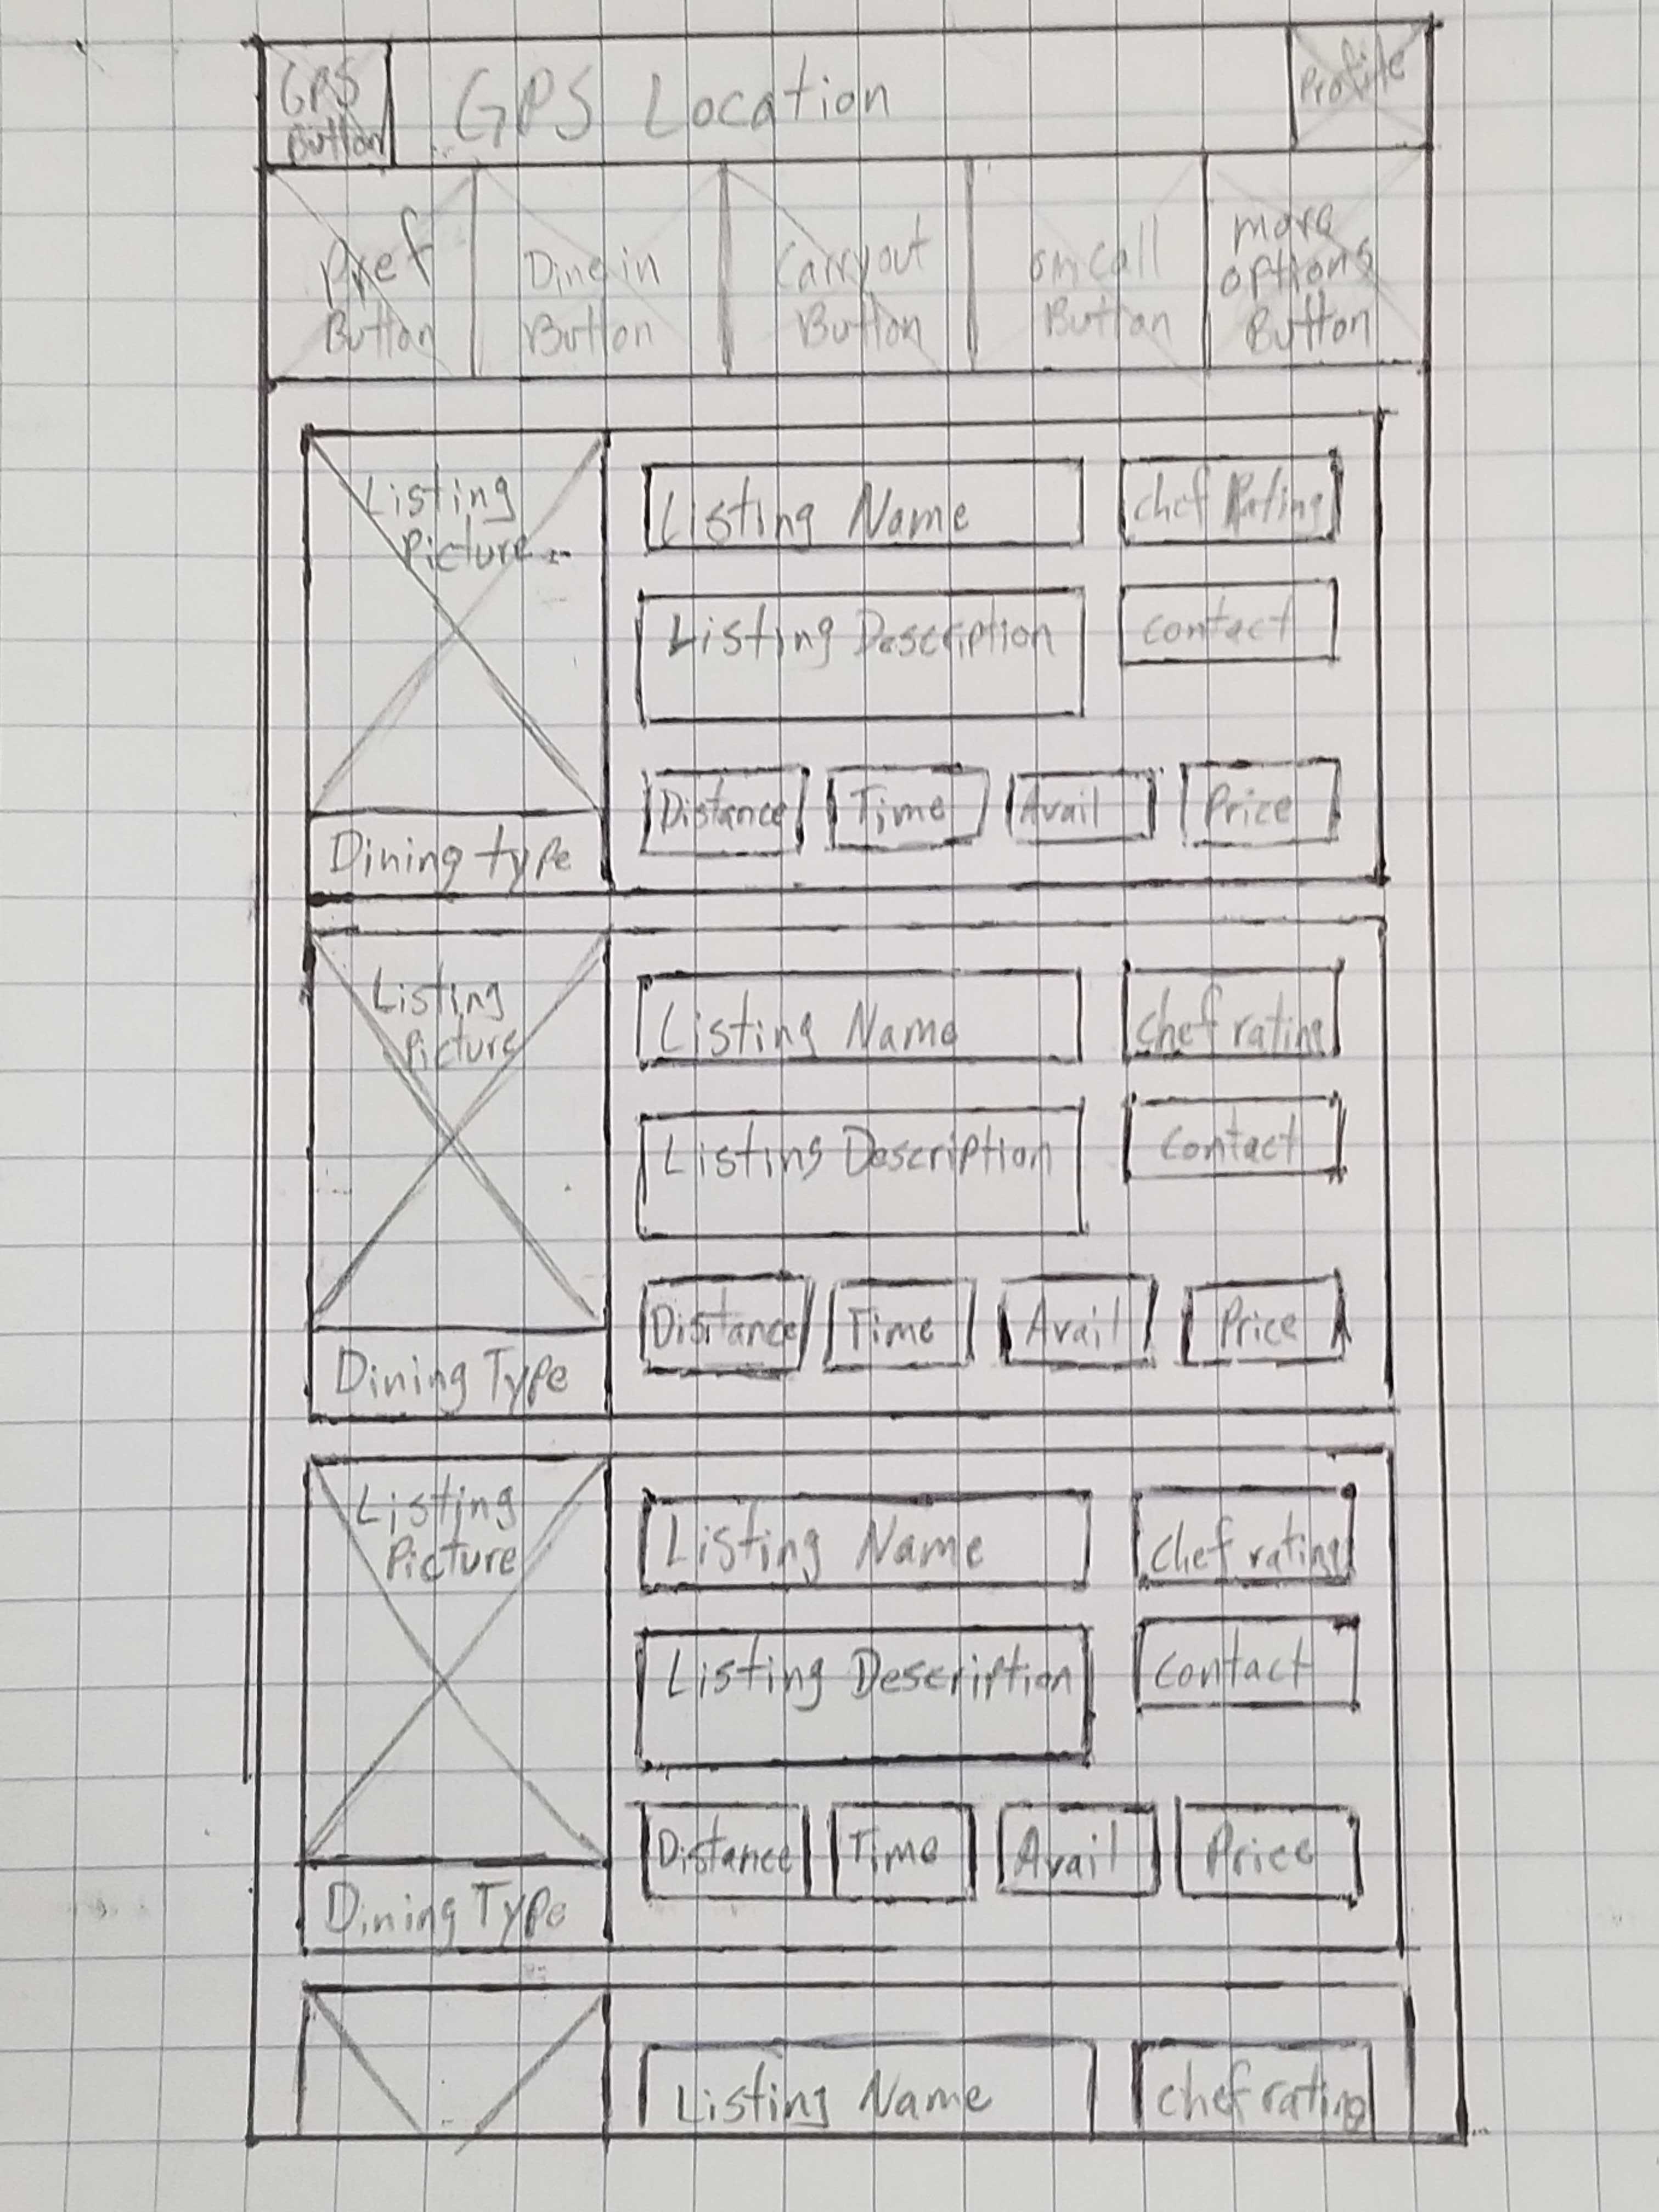 GPS
Button
GPS Location
Profile
Pref
Button
Dine in
Button
Carryout
Button
on call
Button
more
options
Button
Listing
Picture
Dining type
Listing Name
Chef Rating
Listing Description
contact
Distance
Time
Avail
Price
Listing
Picture
Dining Type
Listing Name
Chef rating
Listing Description
contact
Distance
Time
Avail
Price
Listing
Picture
Dining Type
Listing Name
Chef rating
Listing Description
contact
Distance
Time
Avail
Price
Listing Name
Chef rating